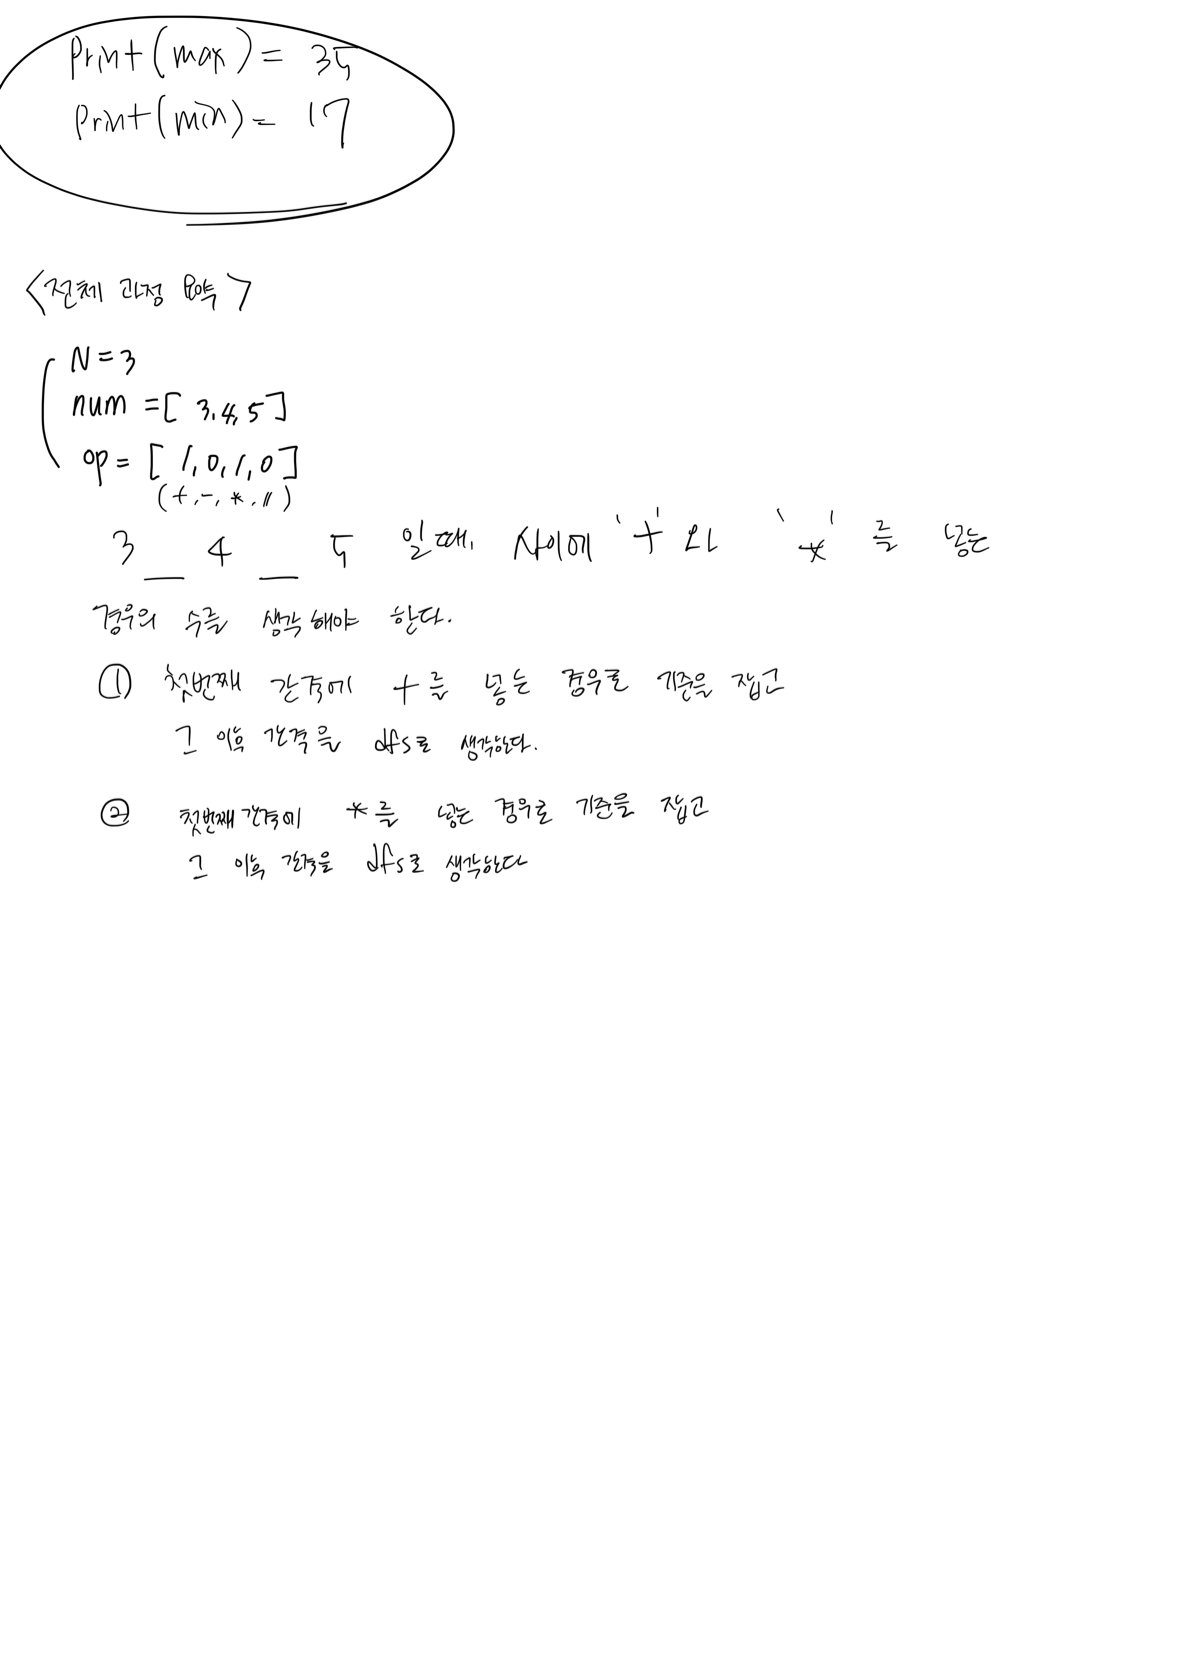 Print(max) = 35
Print(min) = 17
<전체 과정 요약>
N = 3
num = [ 3, 4, 5 ]
op = [ 1, 0, 1, 0 ]
(+, -, *, //)
3 _ 4 _ 5 일때, 사이에 '+' 와 '*' 를 넣는
경우의 수를 생각해야 한다.
① 첫번째 간격에 +를 넣는 경우로 기준을 잡고
그 이후 간격을 dfs로 생각한다.
② 첫번째 간격에 *를 넣는 경우로 기준을 잡고
그 이후 간격을 dfs로 생각한다